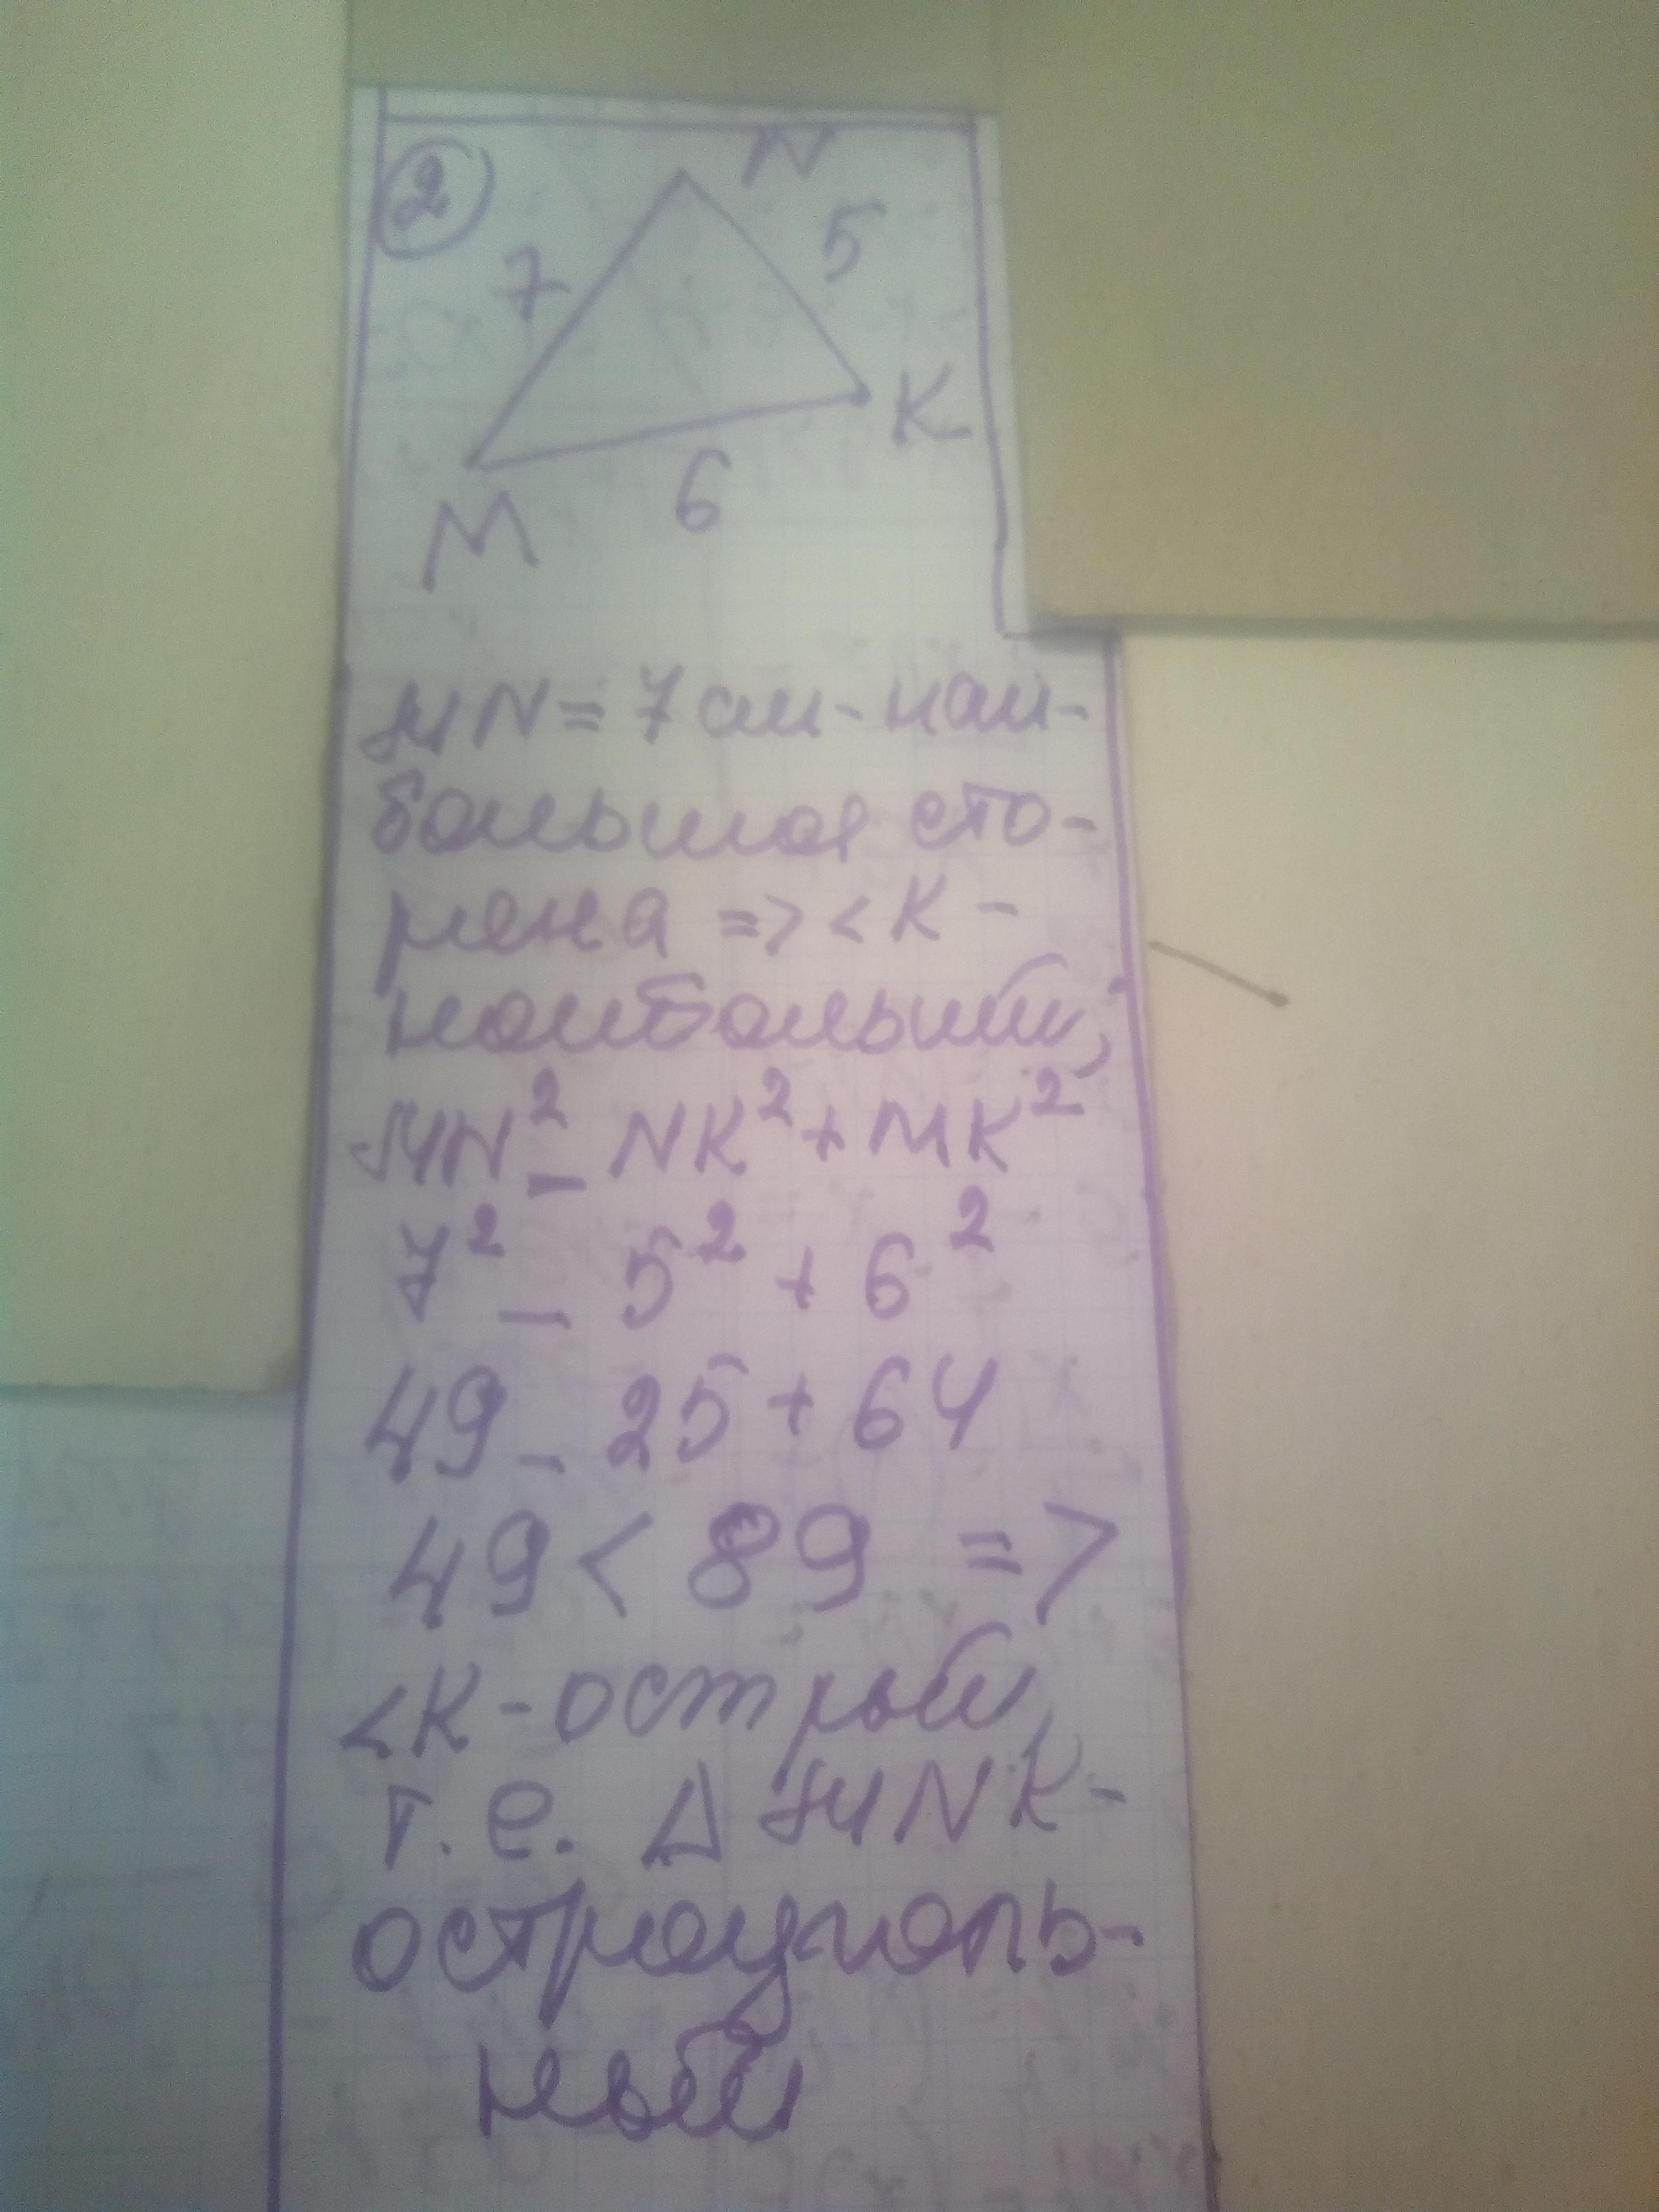 2
N
7
5
K
6
M
MN = 7 см - наи-
большая сто-
рона => <K -
наибольший,
MN² _ NK² + MK²
7² _ 5² + 6²
49 _ 25 + 64
49 < 89 =>
<K - острый,
т.е. Δ MNK -
остроуголь-
ный